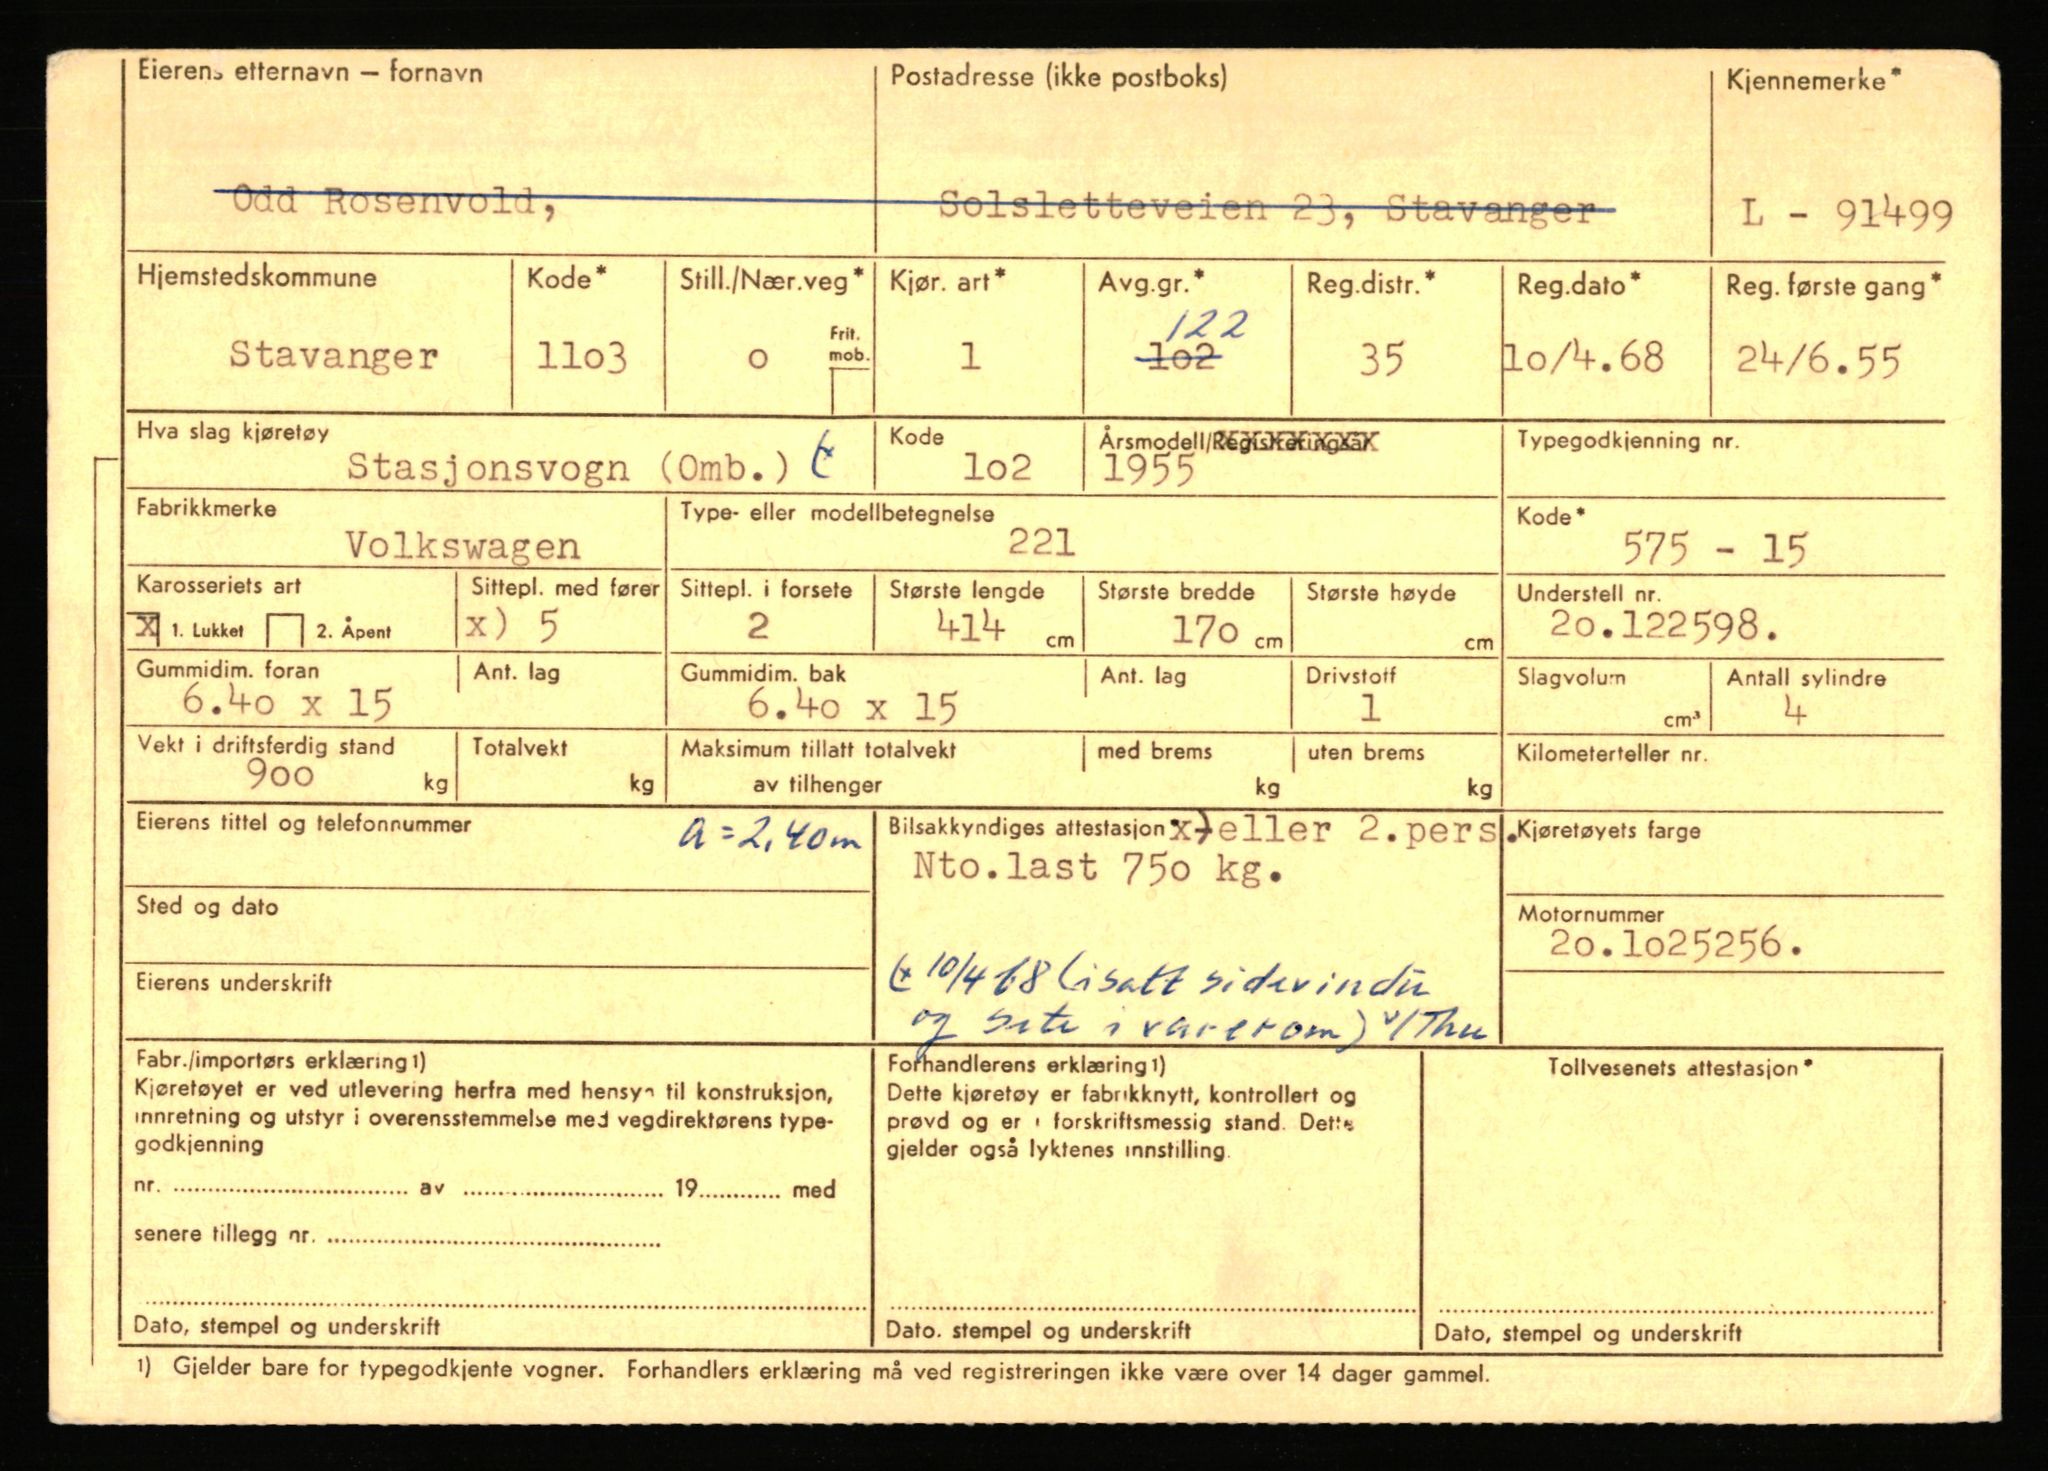 Eierens etternavn – fornavn
Postadresse (ikke postboks)
Kjennemerke*
Odd Rosenvold,
Solsletteveien 23, Stavanger
L - 91499
Hjemstedskommune
Kode*
Still./Nær.veg*
Kjør. art*
Avg.gr.*
Reg.distr.*
Reg.dato*
Reg. første gang*
122
Stavanger
11o3
o
Frit. mob.
1
1o2
35
1o/4.68
24/6.55
Hva slag kjøretøy
Kode
Årsmodell/Registreringsår
Typegodkjenning nr.
Stasjonsvogn (Omb.) (x
1o2
1955
Fabrikkmerke
Type- eller modellbetegnelse
Kode*
Volkswagen
221
575 - 15
Karosseriets art
Sittepl. med fører
Sittepl. i forsete
Største lengde
Største bredde
Største høyde
Understell nr.
X 1. Lukket 2. Åpent
x) 5
2
414 cm
17o cm
cm
2o.122598.
Gummidim. foran
Ant. lag
Gummidim. bak
Ant. lag
Drivstoff
Slagvolum
Antall sylindre
6.4o x 15
6.4o x 15
1
cm³
4
Vekt i driftsferdig stand
Totalvekt
Maksimum tillatt totalvekt
med brems
uten brems
Kilometerteller nr.
9oo kg
kg
av tilhenger
kg
kg
Eierens tittel og telefonnummer
a = 2,40m
Bilsakkyndiges attestasjon x) eller 2.pers.
Kjøretøyets farge
Nto.last 75o kg.
Sted og dato
Motornummer
2o.1o25256.
Eierens underskrift
(x 10/4 68 (isatt sidevindu
og sete i varerom) v/Thu
Fabr./importørs erklæring 1)
Kjøretøyet er ved utlevering herfra med hensyn til konstruksjon,
innretning og utstyr i overensstemmelse med vegdirektørens type-
godkjenning
nr. .......... av .......... 19.......... med
senere tillegg nr. ..........
Dato, stempel og underskrift
Forhandlerens erklæring 1)
Dette kjøretøy er fabrikknytt, kontrollert og
prøvd og er i forskriftsmessig stand. Dette
gjelder også lyktenes innstilling.
Dato. stempel og underskrift
Tollvesenets attestasjon*
Dato, stempel og underskrift
1) Gjelder bare for typegodkjente vogner. Forhandlers erklæring må ved registreringen ikke være over 14 dager gammel.